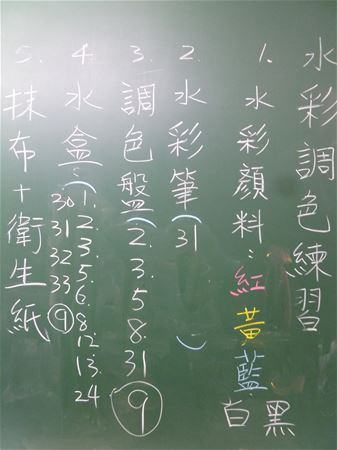 水彩調色練習
1. 水彩顏料：紅黃藍白黑
2. 水彩筆（31）
3. 調色盤（2. 3. 5 8. 31 9
4. 水盒（1. 2. 3. 5. 6. 8. 12. 13. 24
30 31 32 33 9
5. 抹布+衛生紙